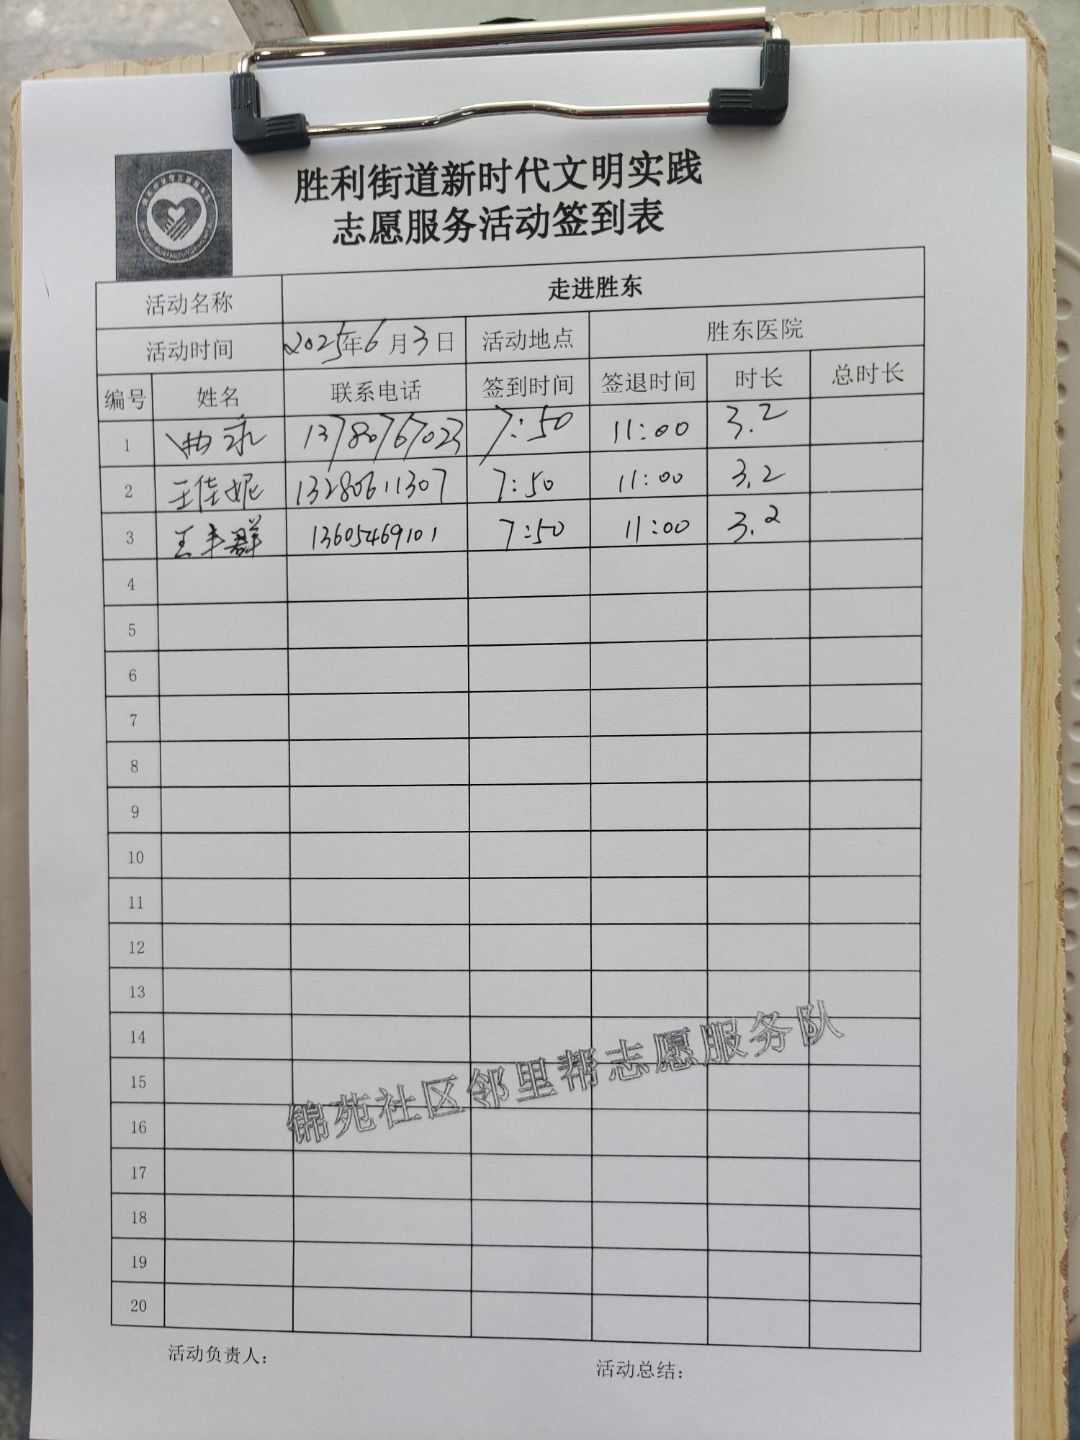 胜利街道新时代文明实践
志愿服务活动签到表
活动名称 走进胜东
活动时间 2025年6月3日 活动地点 胜东医院
编号 姓名 联系电话 签到时间 签退时间 时长 总时长
1 曲永 13780767023 7:50 11:00 3.2
2 王佳妮 13280611307 7:50 11:00 3.2
3 王丰群 13605469101 7:50 11:00 3.2
4
5
6
7
8
9
10
11
12
13
14
15
16
17
18
19
20
锦苑社区邻里帮志愿服务队
活动负责人:
活动总结: